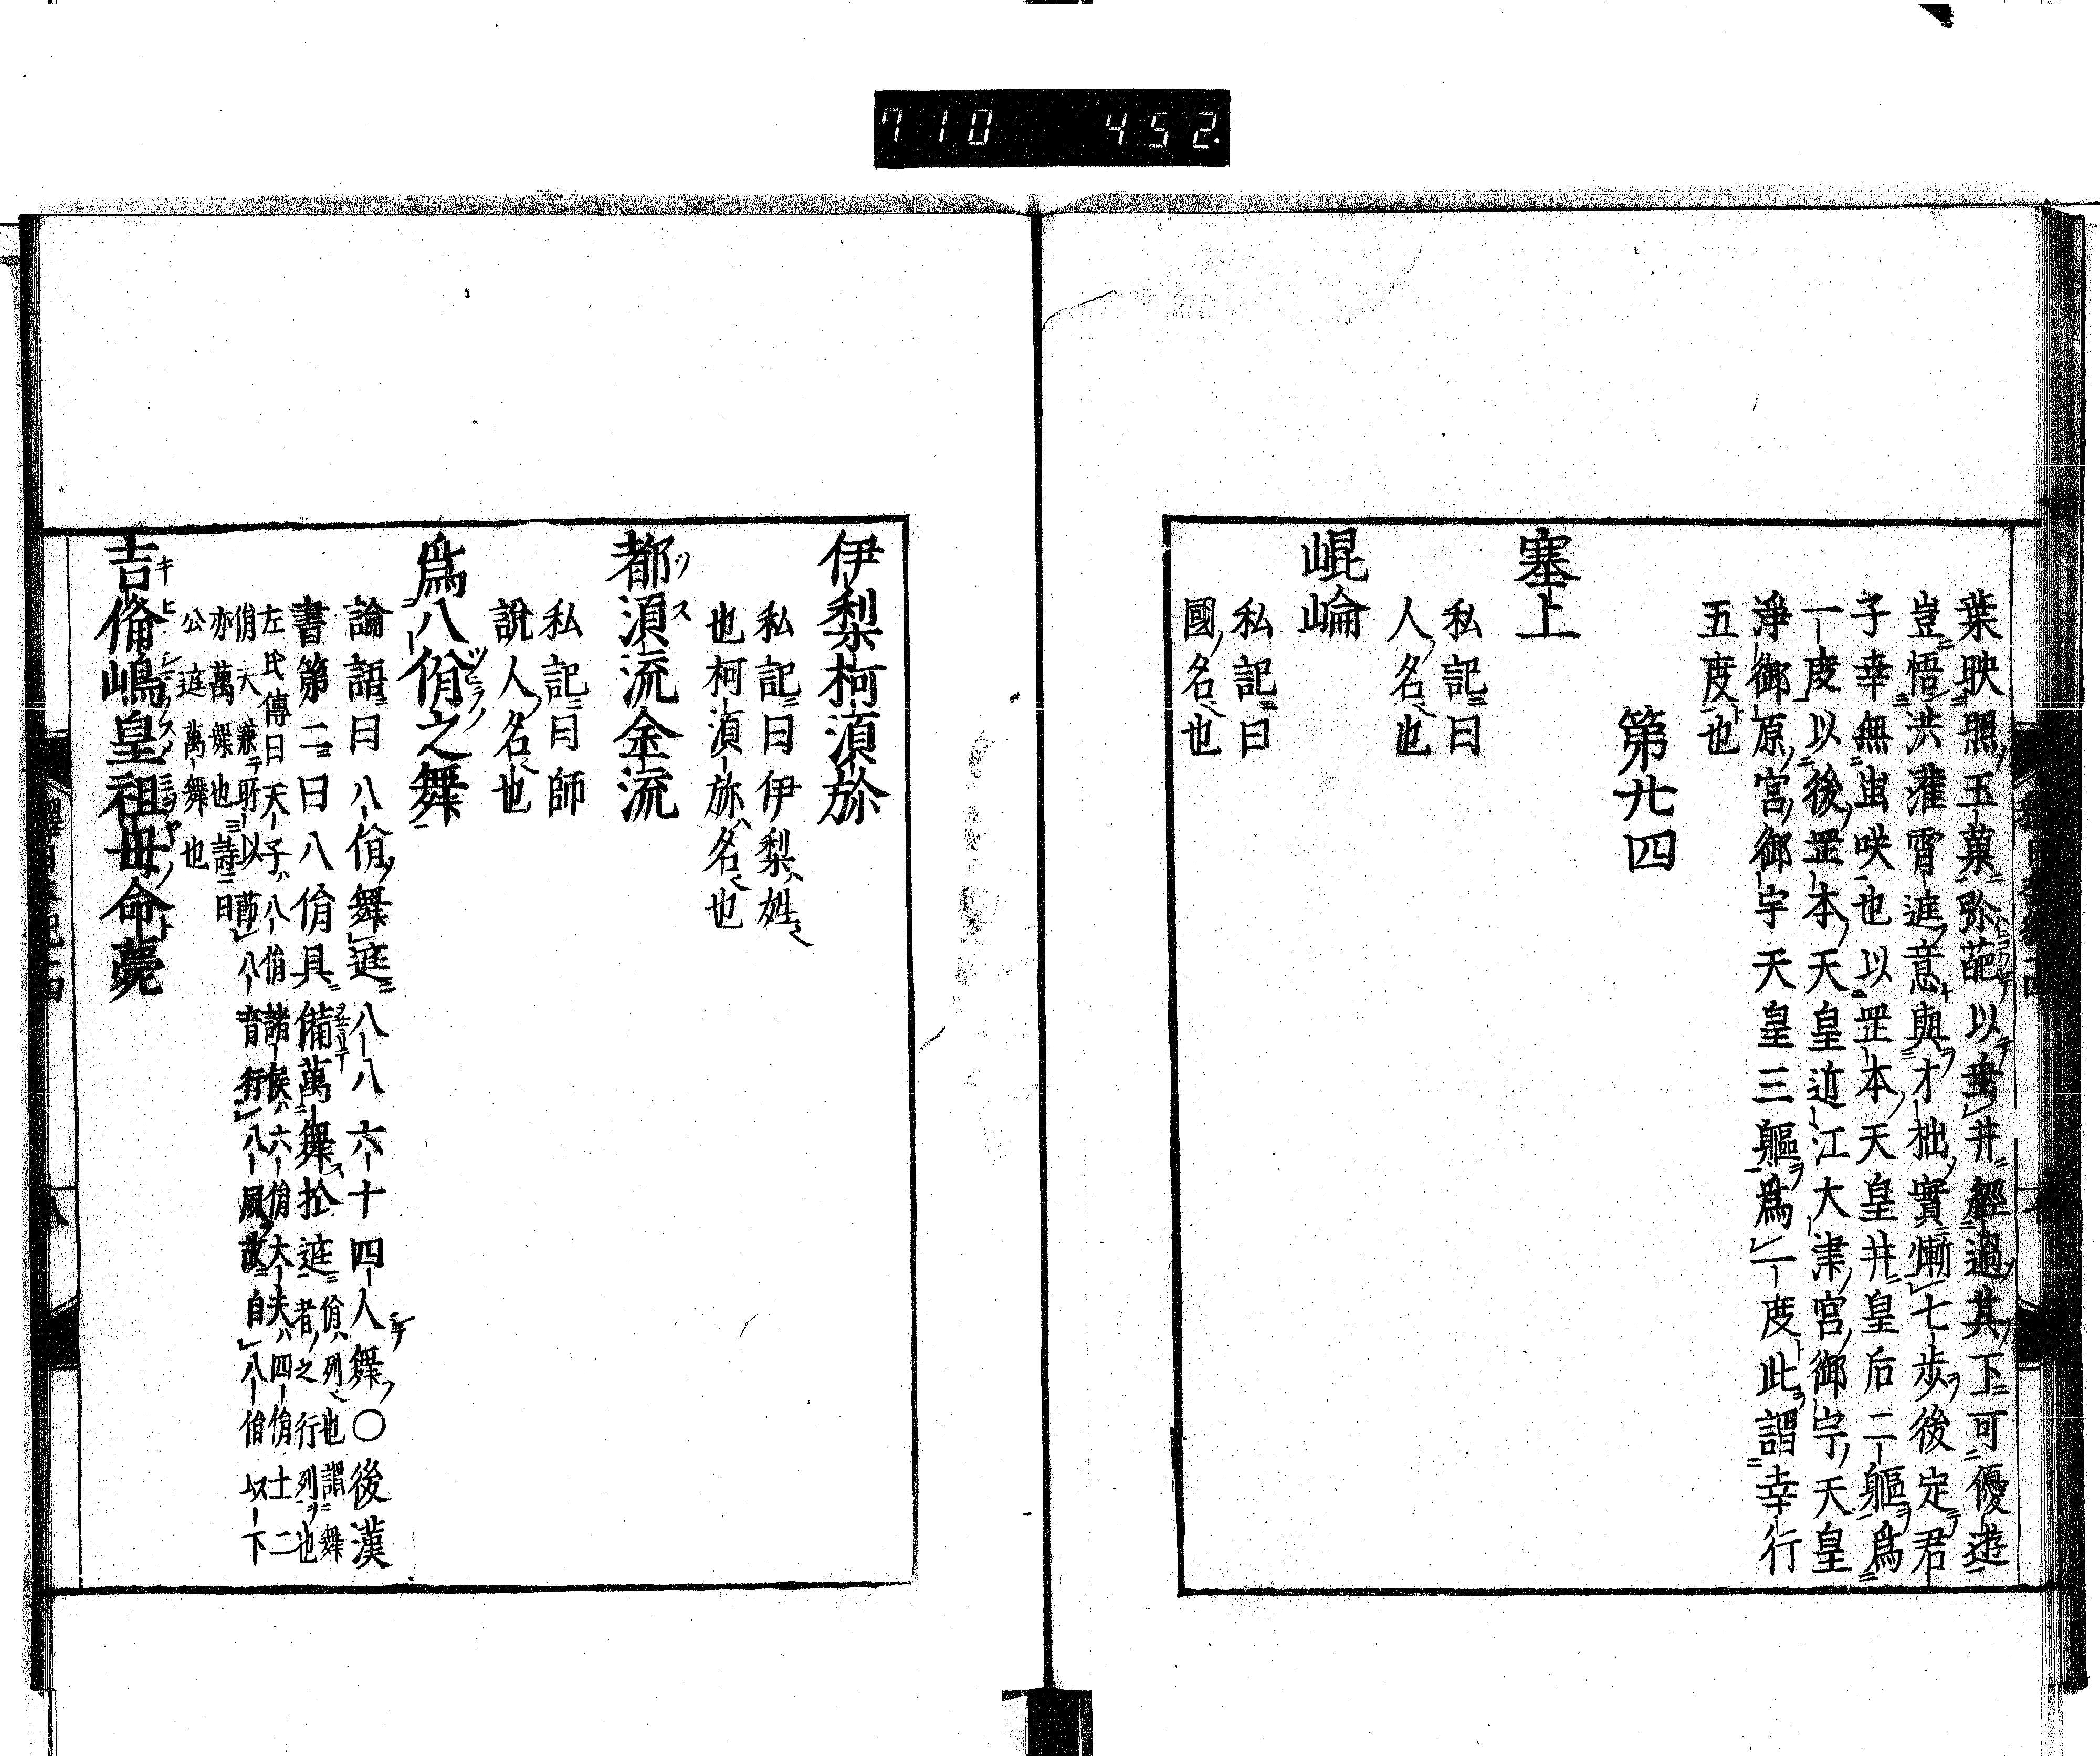 710 452
葉映照玉菓弥葩以垂井經過其下可優遊
豈悟洪灌霄庭意與才拙實慚七歩後定君
子幸無蚩咲也以罡本天皇井皇后二軀為
一度以後罡本天皇近江大津宮御宇天皇
淨御原宮御宇天皇三軀為一度此謂幸行
五度也
第廿四
塞上
私記曰
人名也
崐崘
私記曰
國名也
伊梨柯湏弥
私記曰伊梨姓
也柯湏弥名也
都湏流金流
私記曰師
說人名也
為八佾之舞
論語曰八佾舞庭八八六十四人舞〇後漢
書第二曰八佾具備萬舞於庭佾列也謂舞
者之行列也
左氏傳曰天子八佾諸侯六佾大夫四佾士二
佾夫兼所以節八音行八風故自八佾以下
亦萬舞也詩曰
公庭萬舞也
吉俻嶋皇祖母命薨